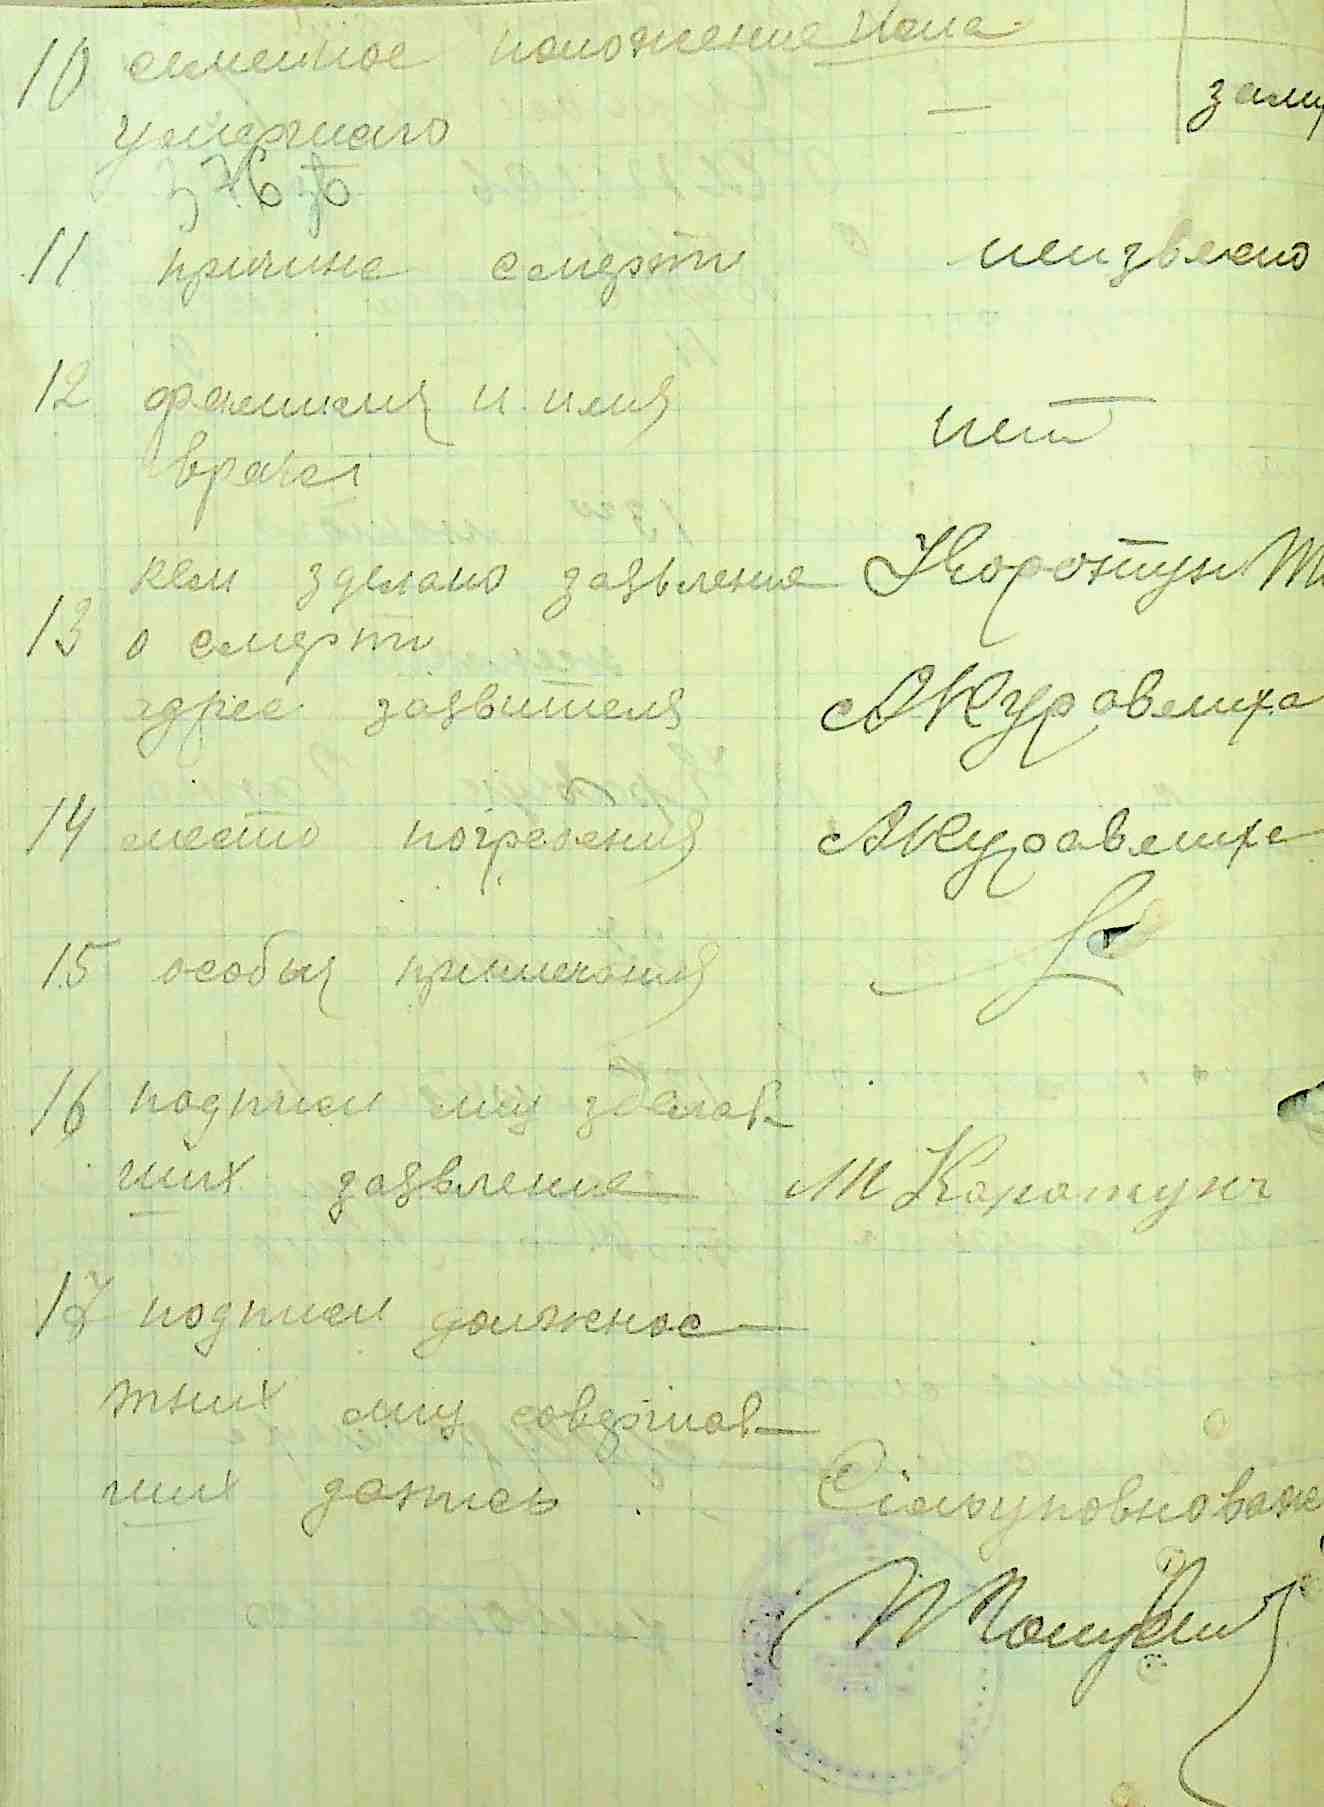 10 семейное положение
умершаго
11 причина смерти неизвесно
12 фамилия и имя нет
врача
кем зделано заявление Коротун
13 о смерти
адрес заявителя Журавлиха
14 место погребения Журавлихе
15 особыя примечания
16 подписи лиц зделав
ших заявление М Коротунъ
17 подписи должнос
тних лиц совершав
ших запись Сільуповноваж